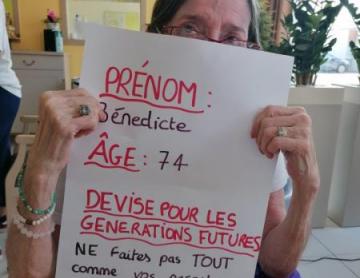 PRÉNOM :
Bénédicte
ÂGE : 74
DEVISE POUR LES
GENERATIONS FUTURES
NE faites pas TOUT
comme vos